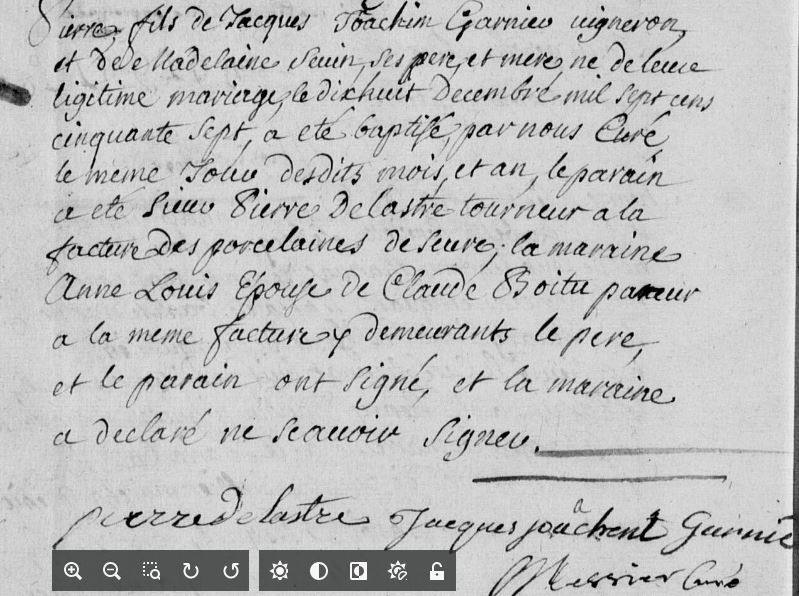 Pierre, fils de Jacques Joachim Garnier vigneron,
et de Madelaine Sevin, ses pere, et mere, ne de leur
ligitime mariage, le dixhuit Decembre mil sept cens
cinquante sept, a eté baptisé, par nous Curé,
le meme Jour desdits mois, et an, le parain
a eté Sieur Pierre Delastre tourneur a la
facture des porcelaines de Seve; la maraine
Anne Louis Epouse de Claude Boitu
a la meme facture y demeurants le pere,
et le parain ont signé, et la maraine
a declaré ne scavoir signer.
pierre Delastre Jacques joachent Garnié
Curé